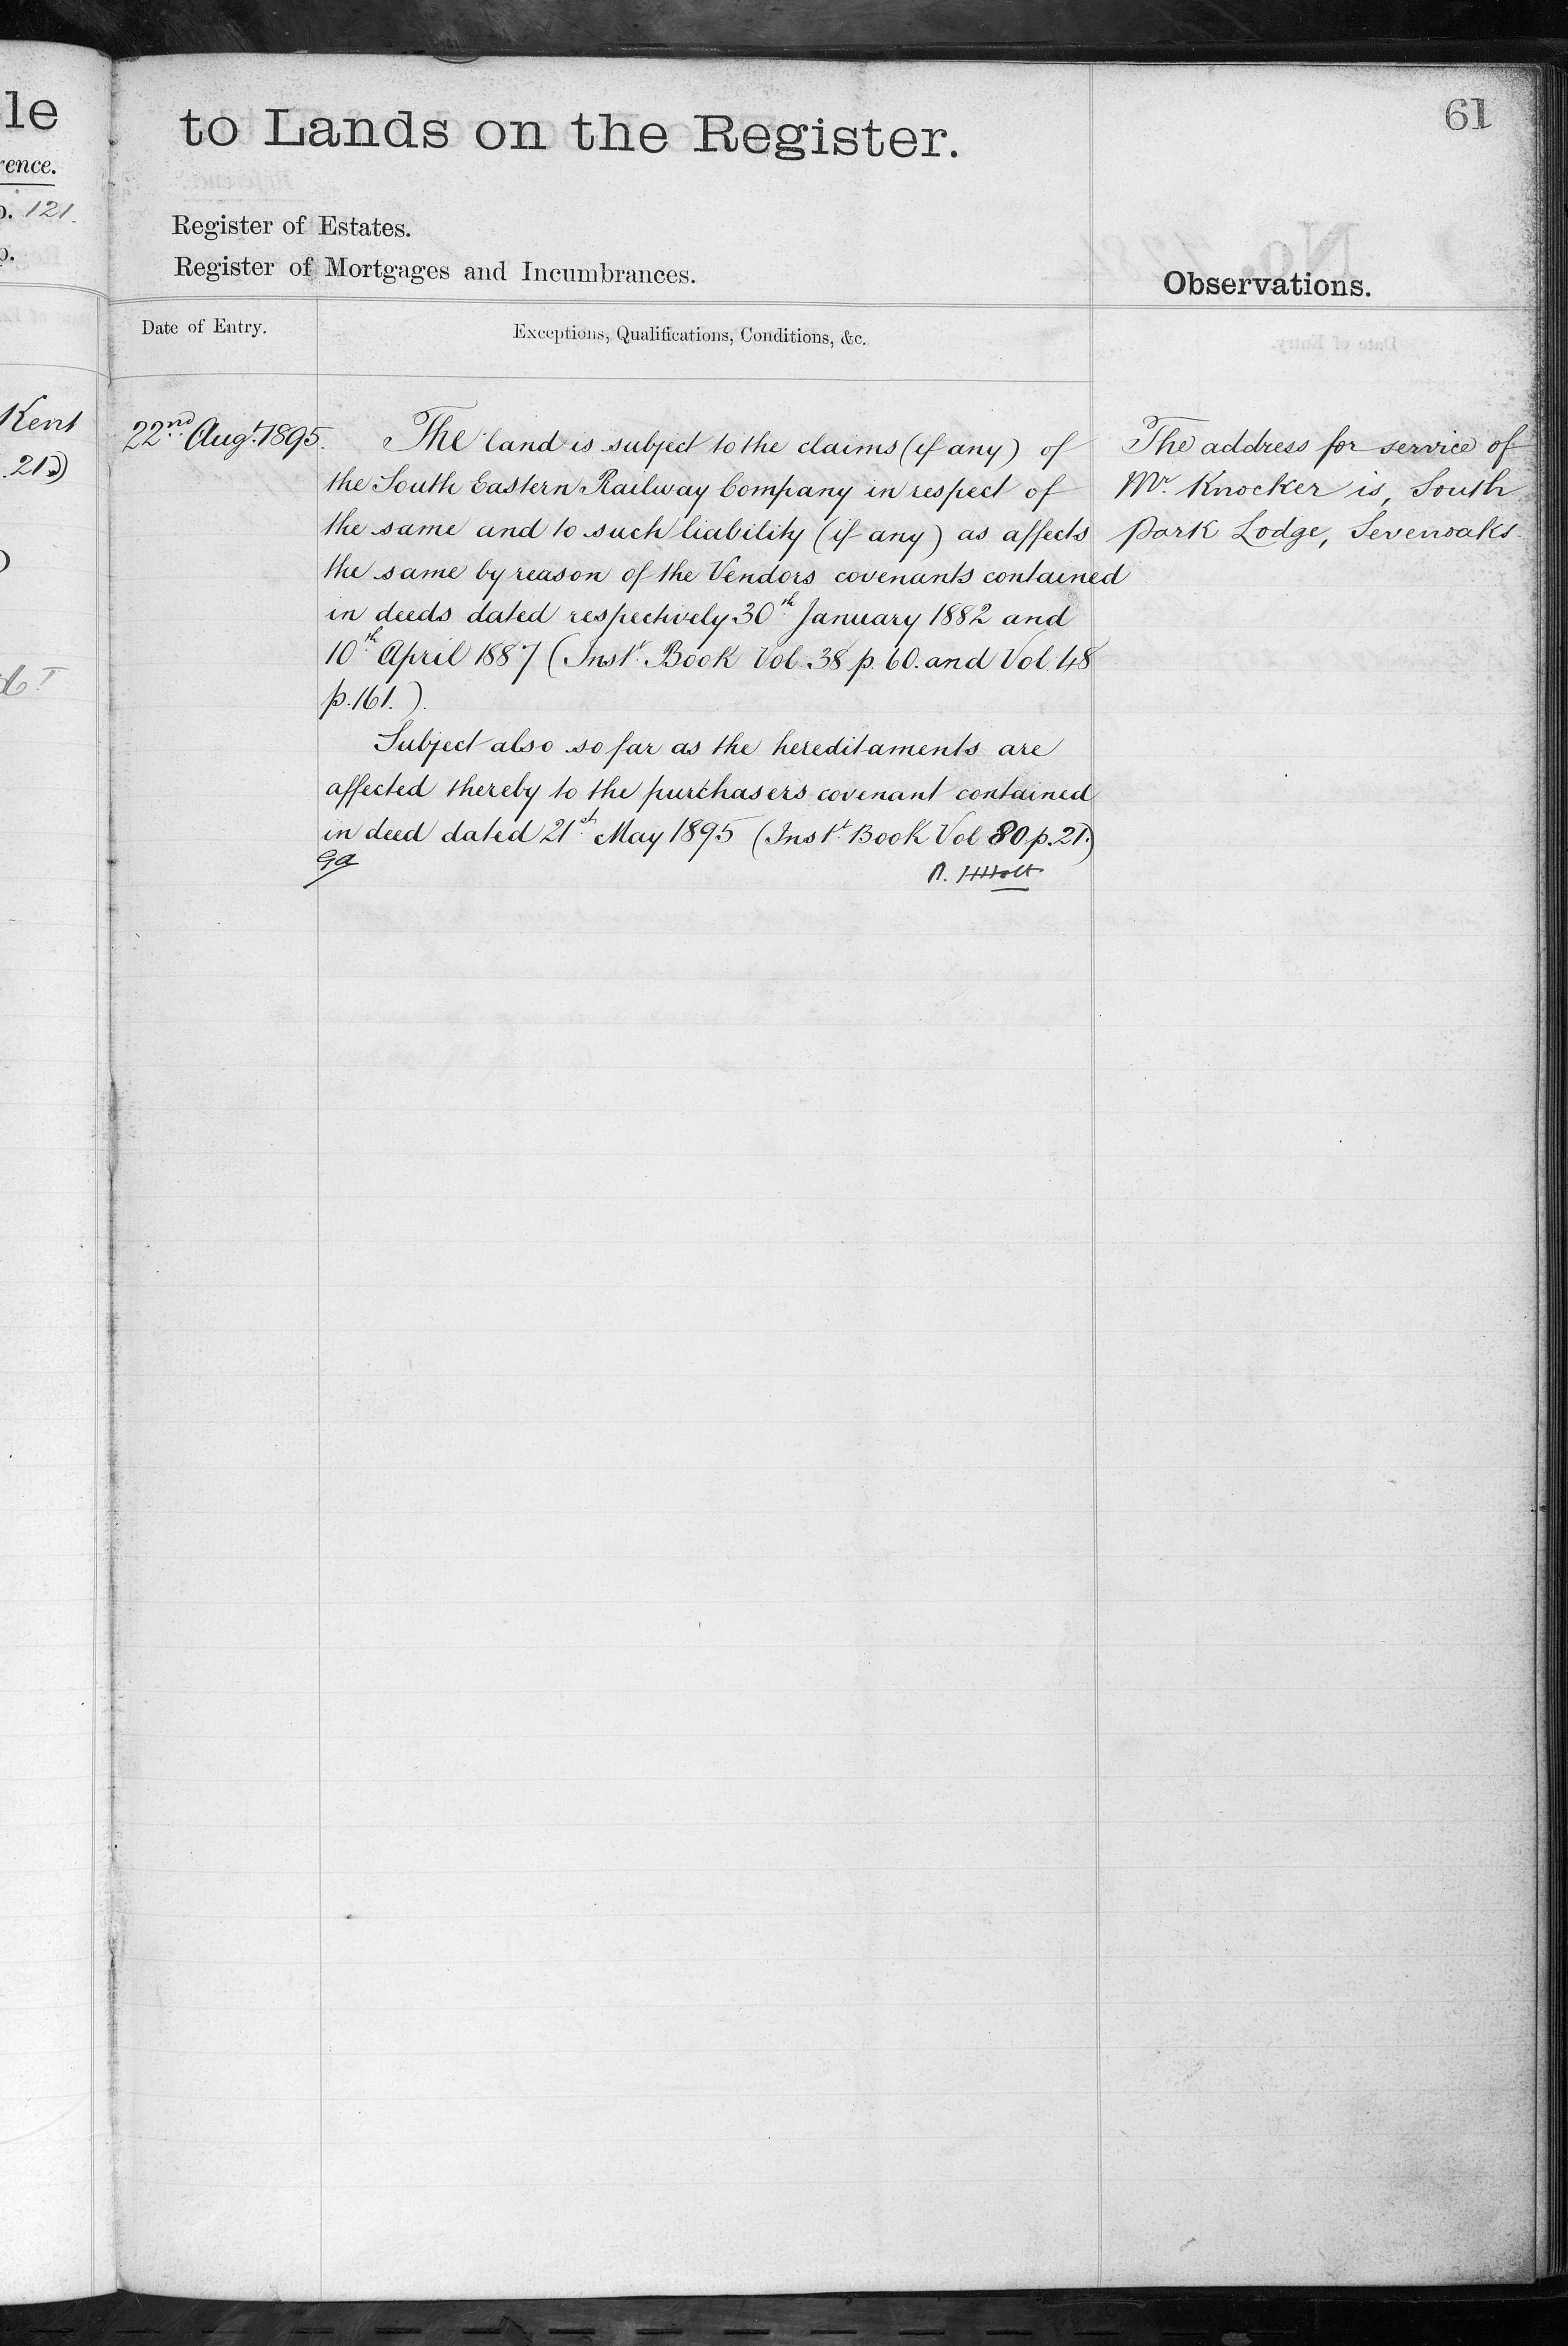 le
rence.
p. 121.
p.
Kent
21.)
to Lands on the Register.
61
Register of Estates.
Register of Mortgages and Incumbrances.
Observations.
Date of Entry.
Exceptions, Qualifications, Conditions, &c.
22nd Augt. 1895.
The land is subject to the claims (if any) of
the South Eastern Railway Company in respect of
the same and to such liability (if any) as affects
the same by reason of the Vendors covenants contained
in deeds dated respectively 30th January 1882 and
10th April 1887 (Inst. Book Vol. 38 p. 60. and Vol. 48
p. 161.).
Subject also so far as the hereditaments are
affected thereby to the purchasers covenant contained
in deed dated 21st May 1895 (Inst. Book Vol 80 p. 21.)
The address for service of
Mr. Knocker is, South
Park Lodge, Sevenoaks.